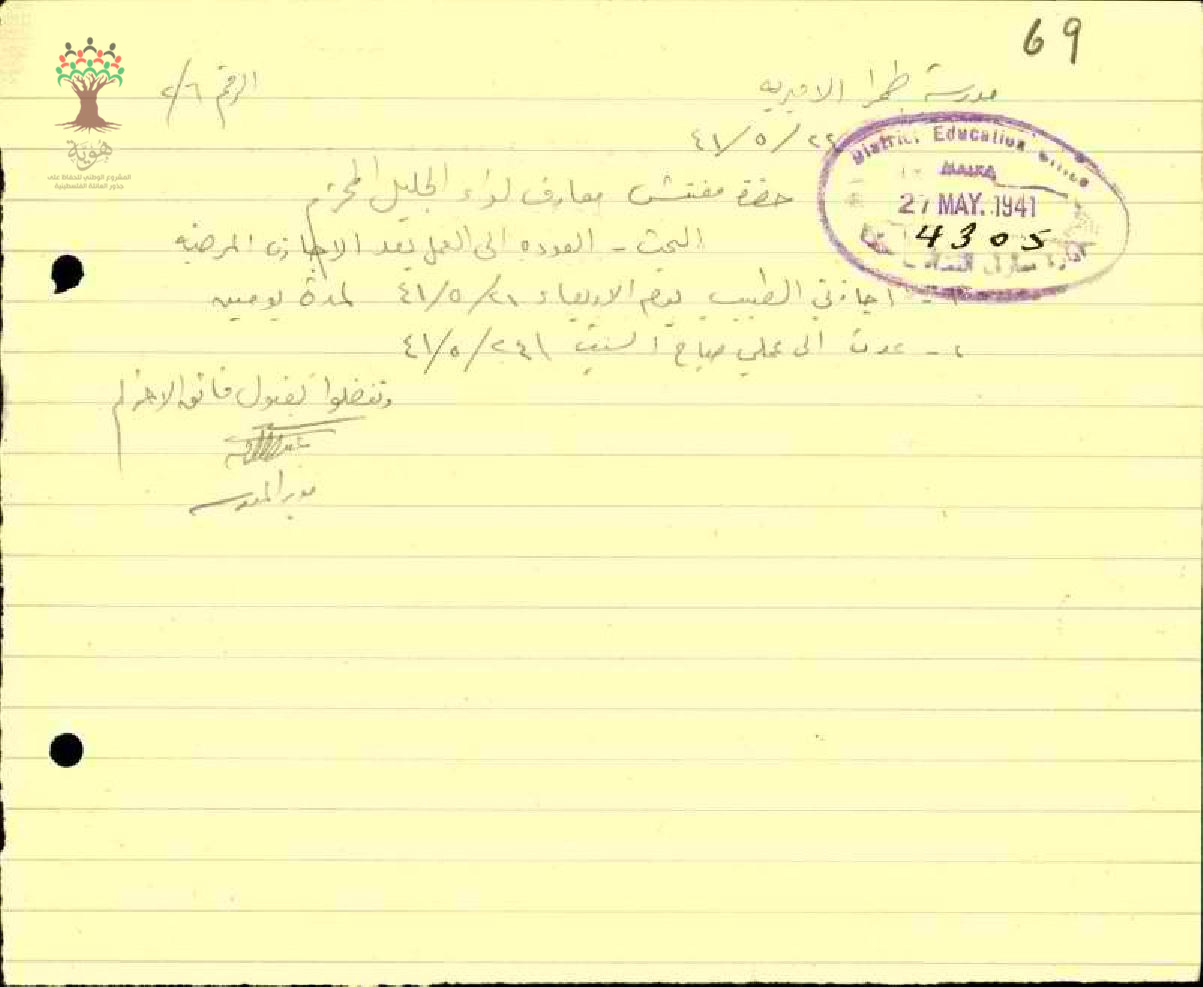 69
مدرسة طمرا الاميريه
الرقم ٢/٦
٤١/٥/٢٤
District Education Office
HAIFA
27 MAY. 1941
4305
حضرة مفتش معارف لواء الجليل المحترم
البحث - العوده الى العمل بعد الاجازه المرضيه
١ - اجازني الطبيب يوم الاربعاء ٤١/٥/٢١ لمدة يومين
٢ - عدت الى عملي صباح السبت ٤١/٥/٢٤
وتفضلوا بقبول فائق الاحترام
مدير المدرسه
هوية
المشروع الوطني للحفاظ على
جذور العائلة الفلسطينية